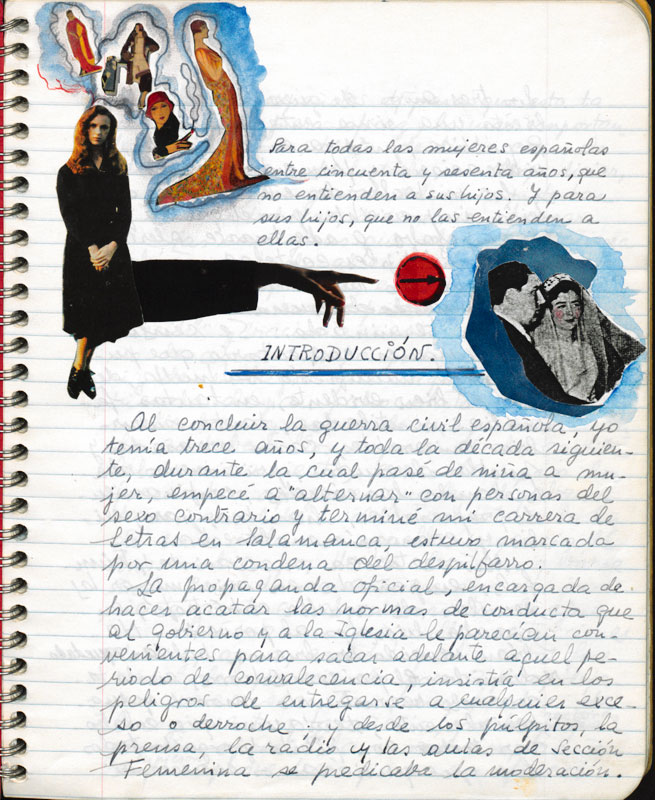 Para todas las mujeres españolas
entre cincuenta y sesenta años, que
no entienden a sus hijos. Y para
sus hijos, que no las entienden a
ellas.
INTRODUCCIÓN.
Al concluir la guerra civil española, yo
tenía trece años, y toda la década siguien-
te, durante la cual pasé de niña a mu-
jer, empecé a "alternar" con personas del
sexo contrario y terminé mi carrera de
letras en Salamanca, estuvo marcada
por una condena del despilfarro.
La propaganda oficial, encargada de
hacer acatar las normas de conducta que
al gobierno y a la Iglesia le parecían con-
venientes para sacar adelante aquel pe-
riodo de convalecencia, insistía en los
peligros de entregarse a cualquier exce-
so o derroche, y desde los púlpitos, la
prensa, la radio y las aulas de Sección
Femenina se predicaba la moderación.